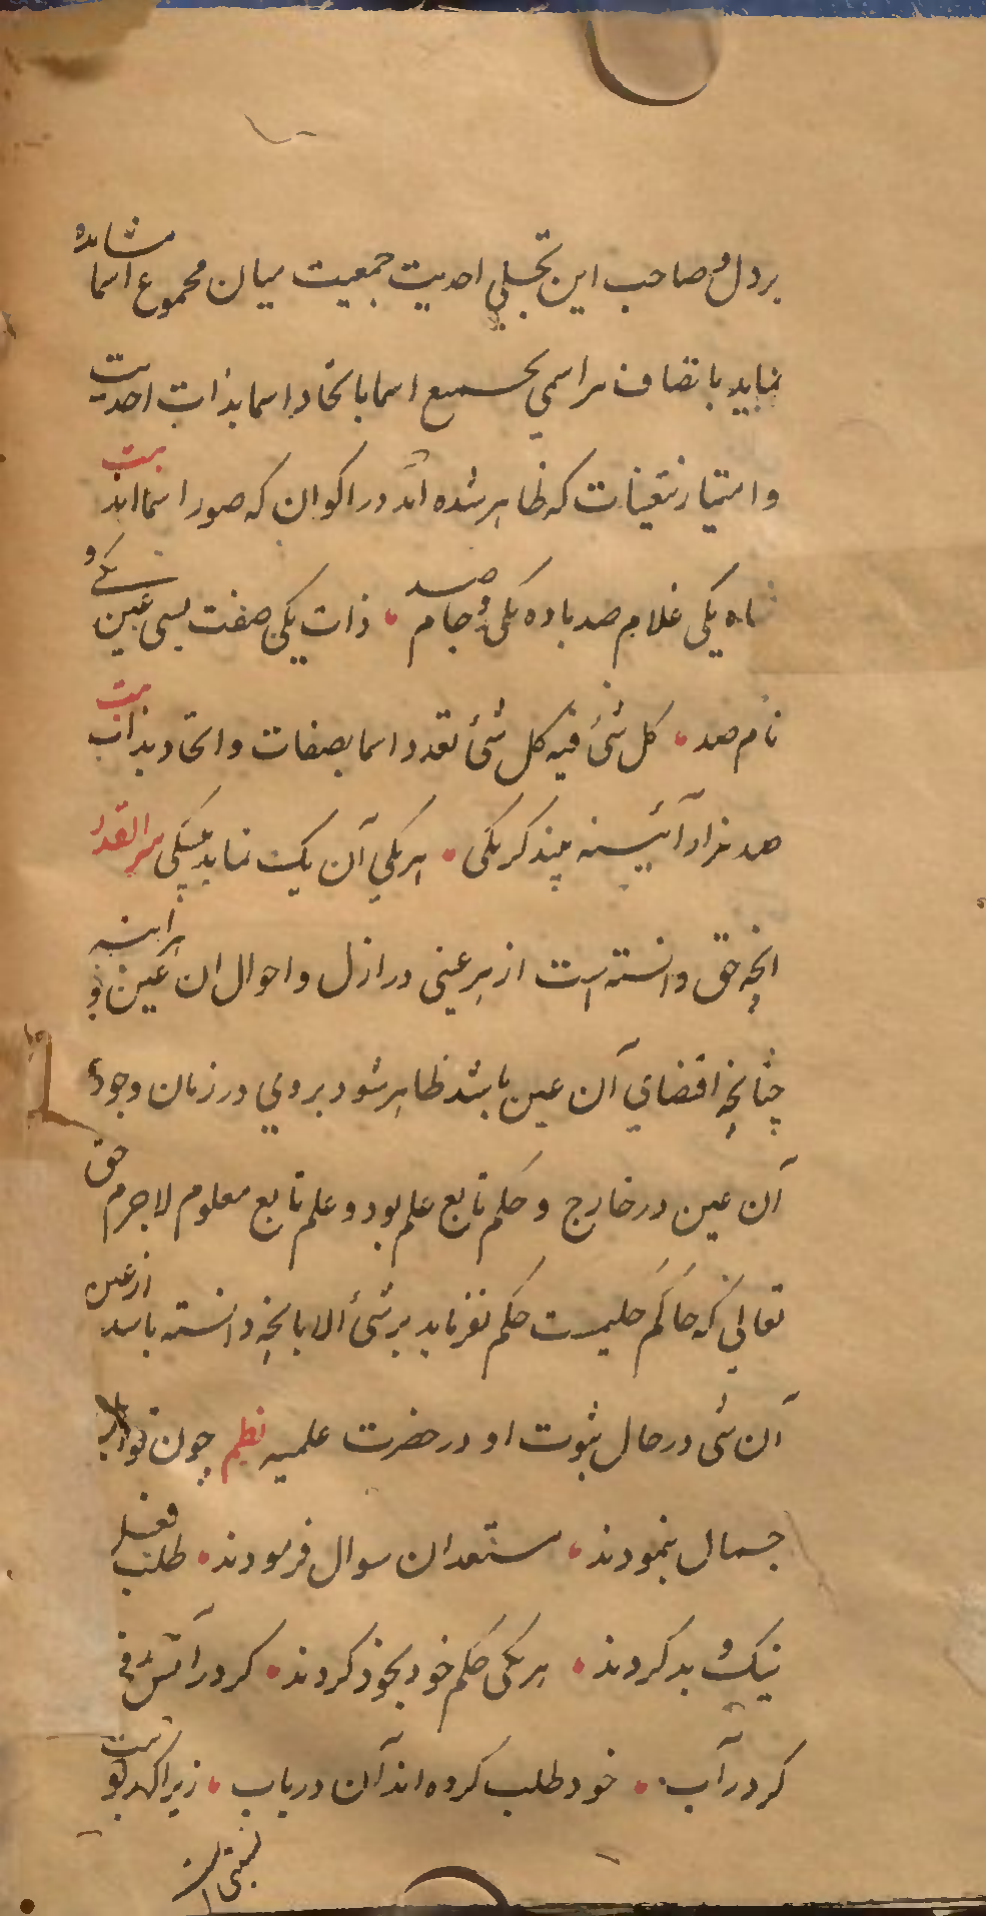 بر دل و صاحب این تجلی احدیت جمعیت میان مجموع اسما مشاهده
نماید باتصاف هر اسمی بجمیع اسما باتحاد اسما بذات احدیت
و امتیاز تعینات که ظاهر شده اند در اکوان که صور اسمااند بیت
شاه یکی غلام صد باده یکی و جام صد • ذات یکی صفت بسی عین یکی و
نام صد • کل شئ فیه کل شئ تعدد اسما بصفات و اتحاد بذات بیت
صد هزار آئینه بیند کر یکی • هر یکی آن یک نماید بیشکی سر القدر
انچه حق دانسته است از هر عینی در ازل و احوال ان عین و هراینه
چنانچه اقتضای آن عین باشد ظاهر شود بروی در زمان وجود
آن عین در خارج و حکم تابع علم بود و علم تابع معلوم لاجرم حق
تعالی که حاکم حکیمست حکم نفرماید بر شئ الا بانچه دانسته باشد از عین
آن شی در حال ثبوت او در حضرت علمیه نظم چون
جمال بنمودند • مستعدان سوال فرمودند • طلب فعل
نیک و بد کردند • هر یکی حکم خود بخود کردند • کر در آتش
کر در آب • خود طلب کرده اند آن دریاب • زیرا که